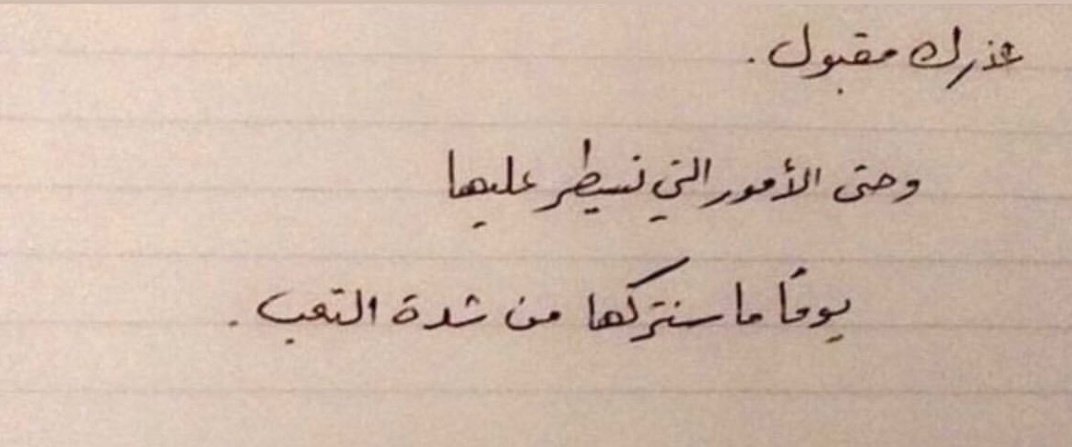 عذرك مقبول.
وحتى الأمور التي نسيطر عليها
يومًا ما سنتركها من شدة التعب.